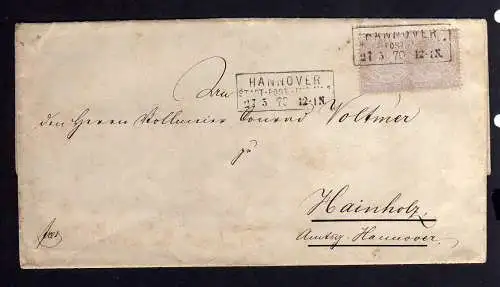 HANNOVER
POST
27 5 70 12-1N.
HANNOVER
STADT-POST
27 5 70 12-1N.
An
den Herrn Vollmeier Conrad Voltmer
zu
Hainholz.
Amtsg. Hannover.